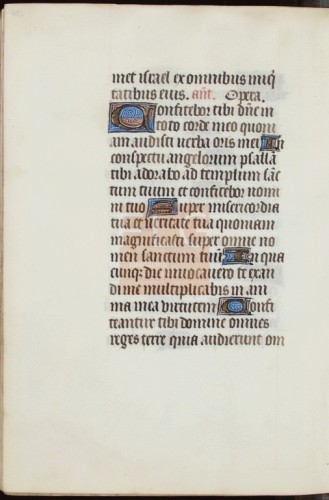 met israel ex omnibus iniq̄
tatibus eius. añt. Opera.
Confitebor tibi dn̄e in
toto corde meo quoni
am audisti uerba oris mei In
conspectu angelorum psallā
tibi adorabo ad templum sāc
tum tuum et confitebor nomi
ni tuo Super misericordia
tua et ueritate tua quoniam
magnificasti super omne no
men sanctum tuū In qua
cunq; die inuocauero te exau
di me multiplicabis in ani
ma mea uirtutem Confi
teantur tibi domine omnes
reges terre quia audierunt om